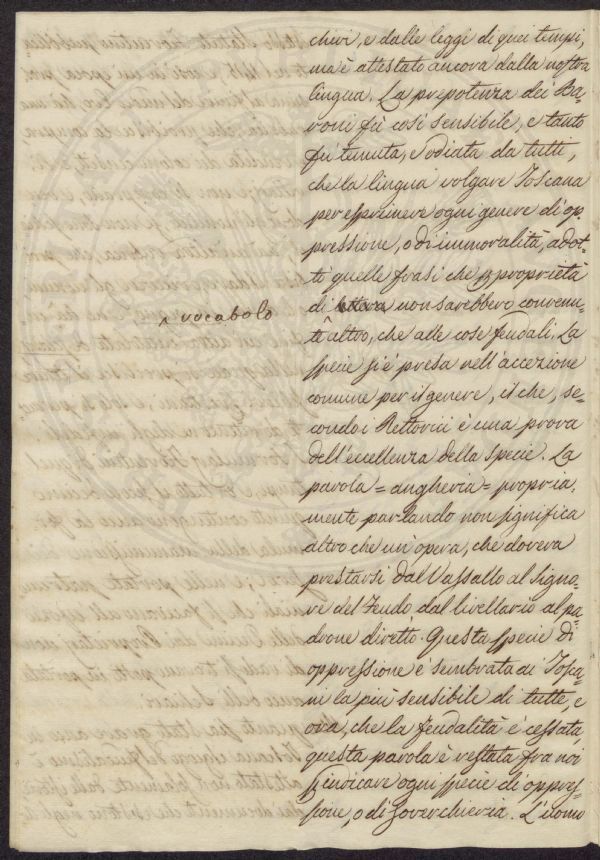 chivi, e dalle leggi di quei tempi,
ma è attestato ancora dalla nostra
lingua. La prepotenza dei Ba-
roni fù così sensibile, e tanto
fù temuta, e odiata da tutti,
che la lingua volgare Toscana
per esprimere ogni genere di op-
pressione, o di immoralità, adot-
tò quelle frasi che proprietà
di non sarebbero convenu-
te altro, che alle cose feudali. La
specie si è presa nell'accezione
comune per il genere, il che, se-
condo i Rettorici è una prova
dell'eccellenza della specie. La
parola = angheria = propria-
mente parlando non significa
altro che un'opera, che doveva
prestarsi dal Vassallo al Signo-
re del Feudo dal livellario al pa-
drone diretto. Questa specie di
oppressione è sembrata ai Tosca-
ni la più sensibile di tutte, e
ora, che la feudalità è cessata
questa parola è restata fra noi
indicare ogni specie di oppres-
sione, o di soverchieria. L'uomo
^ vocabolo